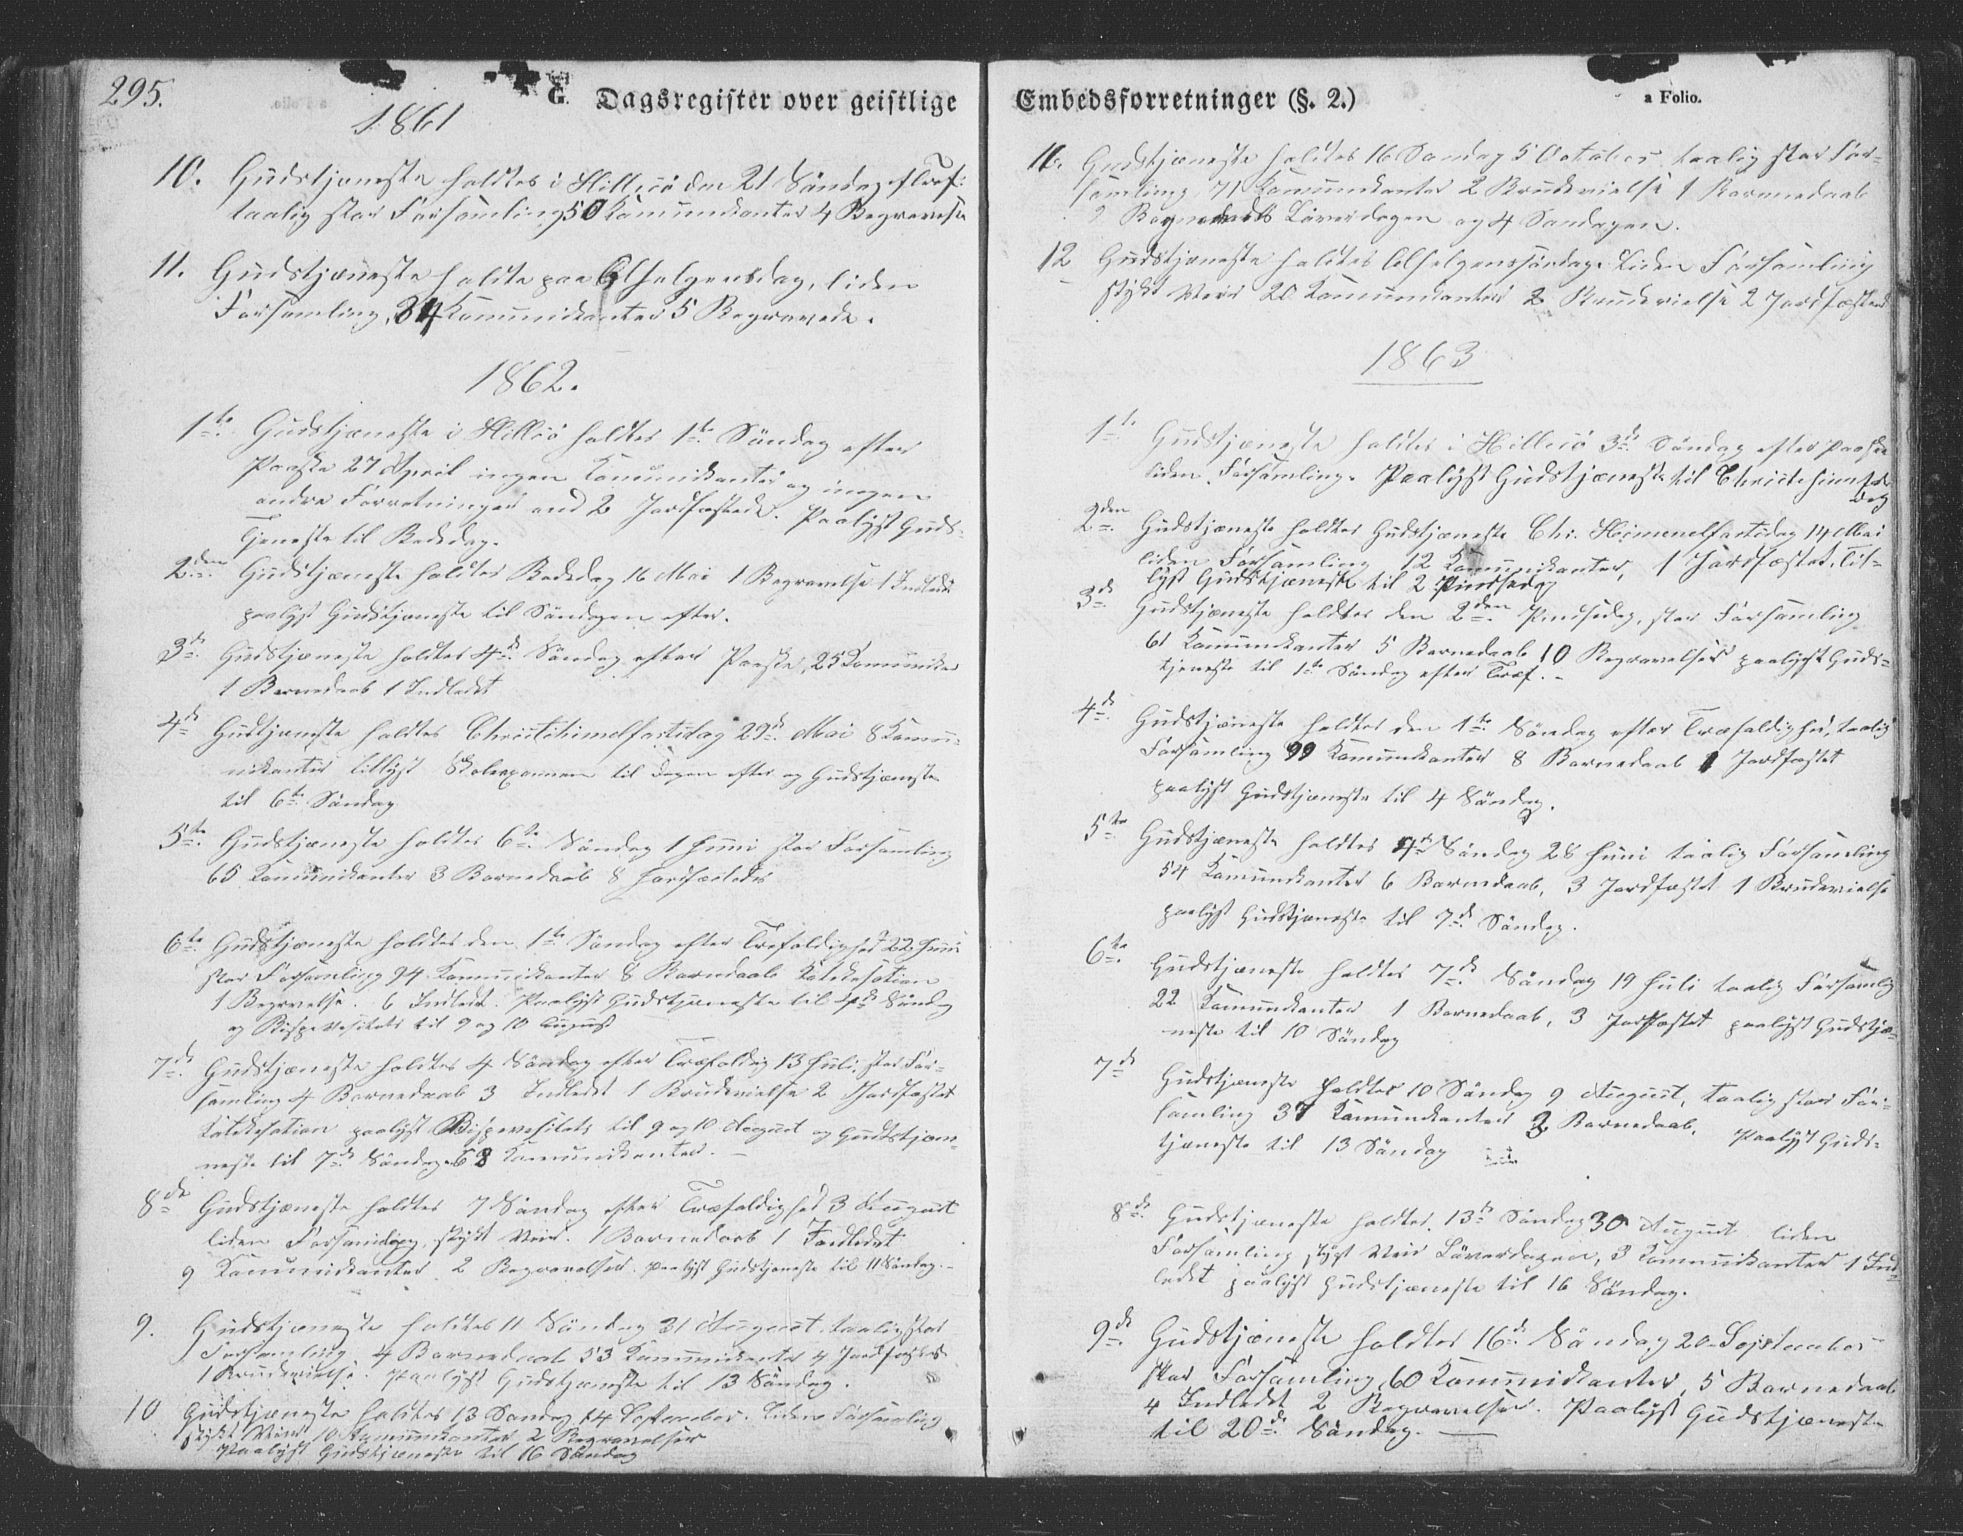 295.
G. Dagsregister over geistlige
1861
10. Gudstjeneste holdtes i Hillesö den 21 Söndag eft Tref:
taalig stor Forsamling 50 Komunikanter 4 Begravelse
11. Gudstjeneste holdte paa Alhelgensdag, liden
Forsamling, 34 Komunikanter 5 Begravede.
1862.
1ste Gudstjeneste i Hillesö holdtes 1ste Söndag efter
Paaske 27 April ingen Komunikanter og ingen
andre Forretninger end 2 Jordfæstede. Paalyst Guds-
Tjeneste til Bededag.
2den Gudstjeneste holdtes Bededag 16 Mai 1 Begravelse 1 Indledt
paalyst Gudstjeneste til Söndagen efter.
3de Gudstjeneste holdtes 4de Söndag efter Paaske, 25 Komunikter
1 Barnedaab 1 Indledt
4de Gudstjeneste holdtes Christihimelfartsdag 29de Mai 8 Komu-
nikanter tillyst Skolexamen til Dagen efter og Gudstjeneste
til 6te Söndag
5te Gudstjeneste holdtes 6te Söndag 1 Juni stor Forsamling
65 Komunikanter 3 Barnedaab 8 Jordfæstede
6te Gudstjeneste holdtes den 1ste Söndag efter Trefoldighed 22 Juni
stor Forsamling 94 Komunikanter 8 Barndaab Katekesation
1 Begravelse. 6 Indledt. Paalyst Gudstjeneste til 4de Söndag
og Bispevisitats til 9 og 10 August
7de Gudstjeneste holdtes 4 Söndag efter Træfoldig 13 Juli, stor For-
samling 4 Barnedaab 3 Indledt 1 Brudevielse 2 Jordfæstet
Katekesation paalyst Bispevisitats til 9 og 10 August og Gudstjen-
neste til 7de Söndag 68 Komunikanter. —
8de Gudstjeneste holdtes 7 Söndag efter Træfoldighed 3 August
liden Forsamling, stykt Veir. 1 Barnedaab 1 Indledet
9 Komunikanter 2 Begravelser. paalyst Gudstjeneste til 11 Söndag. –
9. Gudstjeneste holdtes 11 Söndag 31 August. taalig stor
Forsamling 4 Barnedaab 53 Komunikanter 4 Jordfæstet
1 Brudevielse. Paalyst Gudstjeneste til 13 Söndag.
10 Gudstjeneste holdtes 13 Söndag 14 September. Liden Forsamling
stykt Veir 10 Komunikanter 2 Begravelser
Paalyst Gudstjeneste til 16 Söndag
Embedsforretninger (§. 2.)
a Folio.
11. Gudstjeneste holdtes 16 Söndag 5 October, taalig stor For-
samling 71 Komunikanter 2 Brudevielse 1 Barnedaab
Löverdagen og 4 Sondagen.
12 Gudstjeneste holdtes Alhelgenssöndag. Liden Forsamling
stykt Veir 20 Komunikanter 2 Brudevielse 2 Jordfæsted
1863
1ste Gudstjeneste holdtes i Hillesö 3de Söndag efter Paaske
liden Forsamling. Paalyst Gudstjeneste til Christihimfarts
Dag
2den Gudstjeneste holdtes Gudstjeneste Chr. Himmelfartsdag 14 Mai
liden Forsamling 12 Komunikanter, 1 Jordfæstet, til-
lyst Gudstjeneste til 2 Pindsedag
3de Gudstjeneste holdtes den 2den Pindsedag, stor Forsamling
61 Komunikanter 5 Barnedaab 10 Begravelser paalyst Guds-
tjeneste til 1ste Söndag efter Træf. –
4de Gudstjeneste holdtes den 1ste Söndag efter Træfoldighed, taalig
Forsamling 99 Komunikanter 8 Barnedaab 1 Jordfæstet
paalyst Gudstjeneste til 4 Söndag.
5te Gudstjeneste holdtes 4de Söndag 28 Juni taalig Forsamling
54 Komunikanter 6 Barnedaab, 3 Jordfæstet 1 Brudevielse
paalyst Gudstjeneste til 7de Söndag.
6te Gudstjeneste holdtes 7de Söndag 19 Juli taalig Forsamlig
22 Komunikanter 1 Barnedaab, 3 Jordfæstet paalyst Gudstje-
neste til 10 Söndag
7de Gudstjeneste holdtes 10 Söndag 9 August, taalig stor For-
samling 37 Komunikanter 3 Barnedaab. Paalyst Guds-
tjeneste til 13 Söndag
8de Gudstjeneste holdtes 13de Söndag 30 August liden
Forsamling stygt Veir Löverdagen, 3 Komunikanter 1 Ind-
ledt paalyst Gudstjeneste til 16 Söndag.
9de Gudstjeneste holdtes 16de Söndag 20 September
stor Forsamling, 60 Komunikanter, 5 Barnedaab
4 Indledet 2 Begravelser. Paalyst Gudstjeneste
til 20de Söndag. —